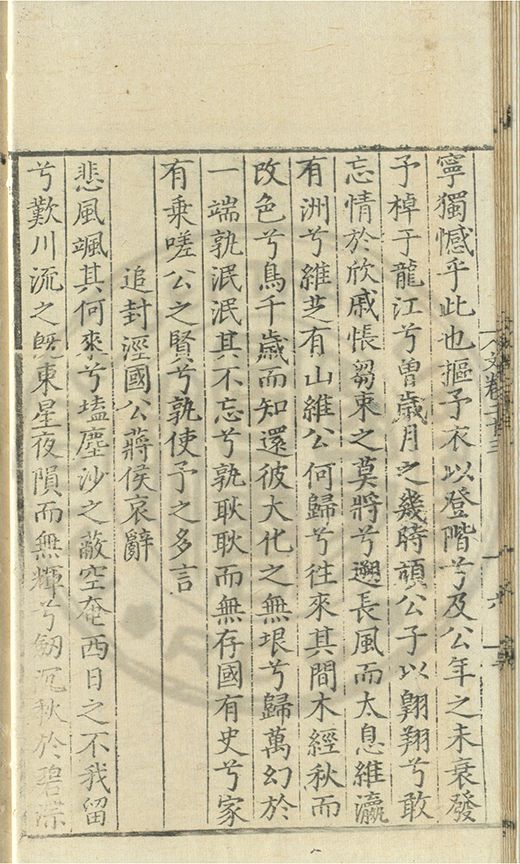 寧獨憾乎此也摳予衣以登階兮及公年之未衰發
予棹于龍江兮曽歳月之幾時頭公子以翺翔兮敢
忘情於欣戚悵芻束之莫將兮遡長風而太息維瀛
有洲兮維芝有山維公何歸兮往來其間木經秋而
改色兮鳥千歳而知還彼大化之無垠兮歸萬幻於
一端孰泯泯其不忘兮孰耿耿而無存國有史兮家
有乗嗟公之賢兮孰使予之多言
追封涇國公蔣侯哀辭
悲風颯其何來兮壒塵沙之蔽空奄西日之不我留
兮歎川流之旣東星夜隕而無輝兮劒沉秋於碧深
文卷二十三
六